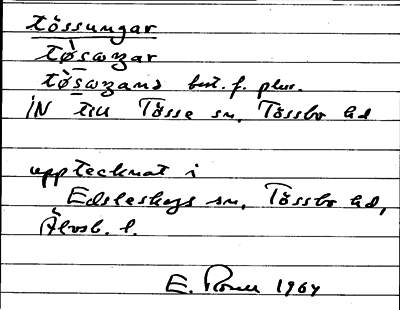 tössungar
tø̀sωŋar
tø̀sωŋana best. f. plur.
IN till Tösse sn, Tössbo hd
upptecknat i
Edsleskogs sn, Tössbo hd,
Älvsb. l.
E. 1964